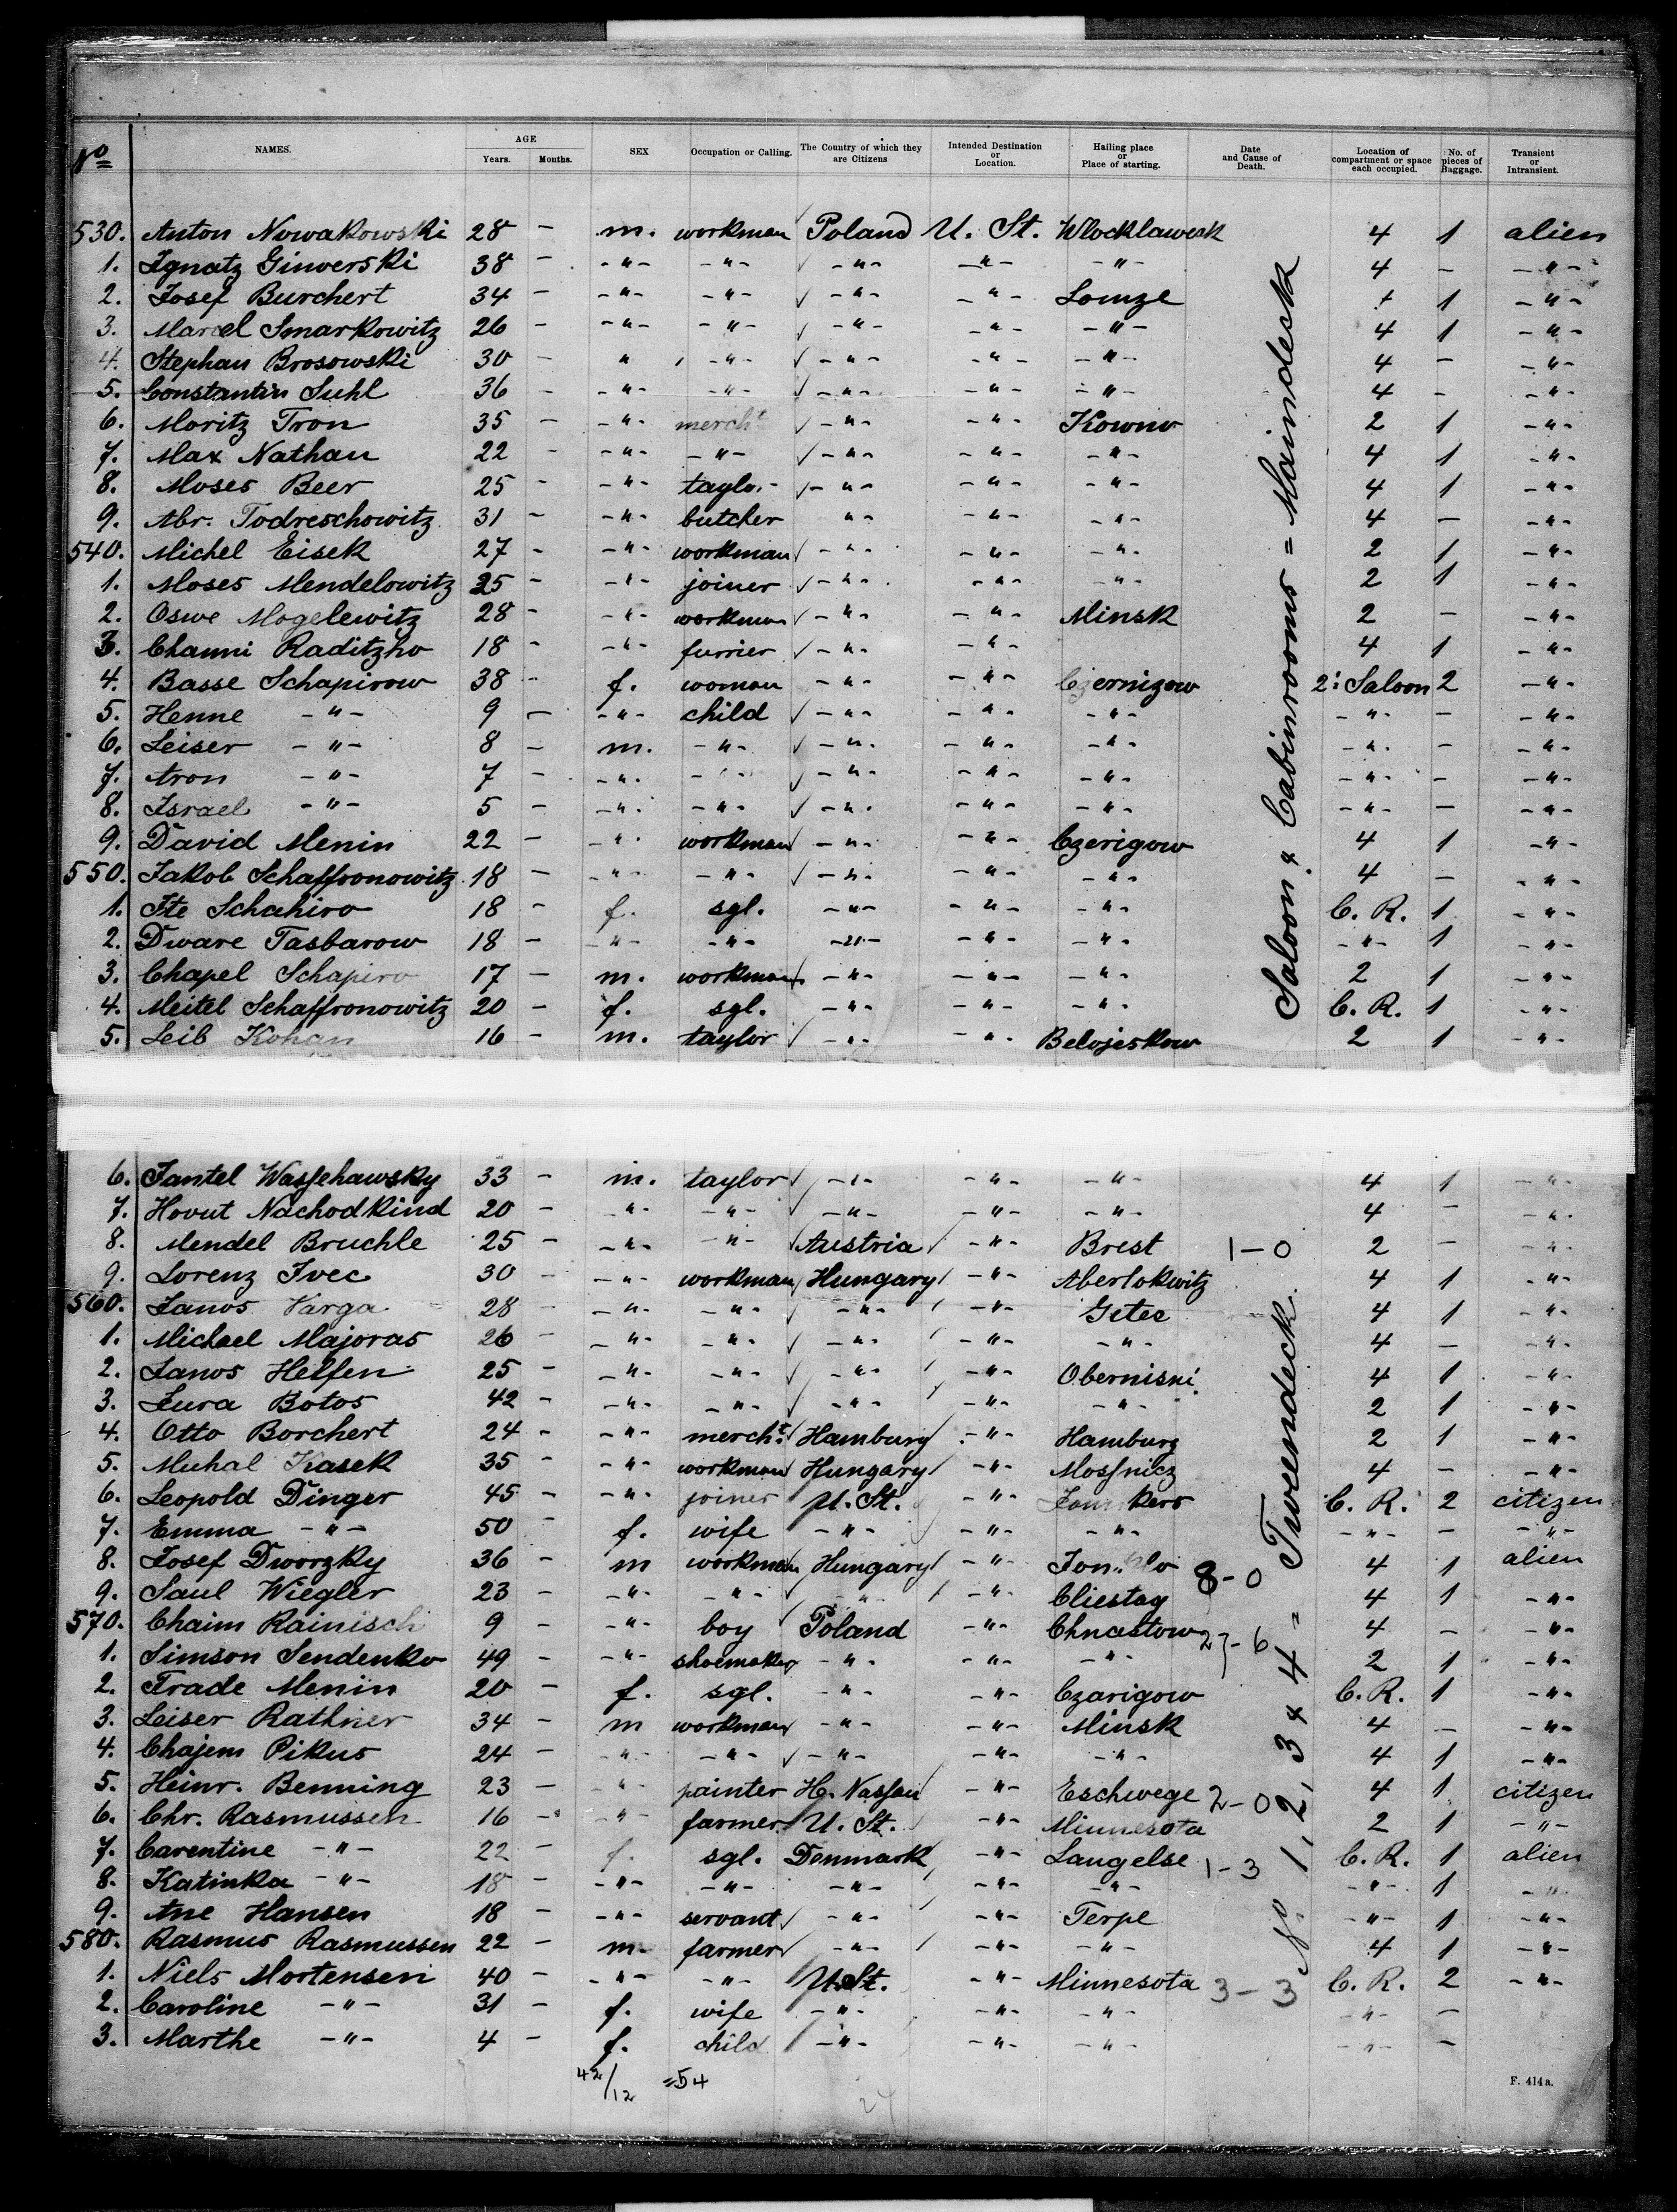 No
NAMES.
AGE
Years.
Months.
SEX
Occupation or Calling.
The Country of which they are Citizens
Intended Destination or Location.
Hailing place or Place of starting.
Date and Cause of Death.
Location of compartment or space each occupied.
No. of pieces of Baggage.
Transient or Intransient.
530. Anton Nowakowski 28 – m. workman Poland U. St. Wlocklawesk 4 1 alien
1. Ignatz Ginwerski 38 – -"- -"- -"- -"- -"- 4 – -"-
2. Josef Burchert 34 – -"- -"- -"- -"- Lomze 1 -"-
3. Marcel Smarkowitz 26 – -"- -"- -"- -"- -"- 4 1 -"-
4. Stephan Brosowski 30 – " -"- -"- -"- -"- 4 – -"-
5. Constantin Suhl 36 – -"- -"- -"- -"- -"- 4 – -"-
6. Moritz Tron 35 – -"- mercht -"- -"- Kowno 2 1 -"-
7. Max Nathan 22 – -"- -"- -"- -"- -"- 4 1 -"-
8. Moses Beer 25 – -"- taylor -"- -"- -"- 4 1 -"-
9. Abr. Todreschowitz 31 – -"- butcher " -"- -"- 4 – -"-
540. Michel Eisek 27 – -"- workman -"- -"- -"- 2 1 -"-
1. Moses Mendelowitz 25 – -"- joiner -"- -"- -"- 2 1 -"-
2. Oswe Mogelewitz 28 – -"- workman -"- -"- Minsk 2 – -"-
3. Channi Raditzho 18 – -"- furrier -"- -"- 4 1 -"-
4. Basse Schapirow 38 – f. woman -"- -"- Czernizow 2: Saloon 2 -"-
5. Henne -"- 9 – -"- child -"- -"- -"- -"- – -"-
6. Leiser -"- 8 – m. -"- -"- -"- -"- -"- – -"-
7. Aron -"- 7 – -"- -"- -"- -"- -"- -"- – -"-
8. Israel -"- 5 – -"- -"- -"- -"- -"- -"- – -"-
9. David Menin 22 – -"- workman -"- -"- Czerigow 4 1 -"-
550. Jakob Schaffronowitz 18 – -"- -"- -"- -"- -"- 4 – -"-
1. Ite Schahiro 18 – f. sgl. -"- -"- -"- C. R. 1 -"-
2. Dware Tasbarow 18 – -"- -"- -"- -"- -"- -"- 1 -"-
3. Chapel Schapiro 17 – m. workman -"- -"- -"- 2 1 -"-
4. Meitel Schaffronowitz 20 – f. sgl. -"- -"- -"- C. R. 1 -"-
5. Leib Kohan 16 – m. taylor -"- -"- Belojeskow 2 1 -"-
Saloon & Cabinrooms = Maindesk
6. Jantel Wassehawsky 33 – m. taylor -"- -"- -"- 4 1 -"-
7. Hovut Nachodkind 20 – -"- -"- -"- -"- -"- 4 – -"-
8. Mendel Bruchle 25 – -"- -"- Austria -"- Brest 1–0 2 – -"-
9. Lorenz Ivec 30 – -"- workman Hungary -"- Aberlokwitz 4 1 -"-
560. Janos Varga 28 – -"- -"- -"- -"- Getec 4 1 -"-
1. Michael Majoras 26 – -"- -"- -"- -"- -"- 4 – -"-
2. Janos Helfen 25 – -"- -"- -"- -"- Obernisni 4 1 -"-
3. Jura Botos 42 – -"- -"- -"- -"- -"- 2 1 -"-
4. Otto Borchert 24 – -"- mercht. Hamburg -"- Hamburg 2 1 -"-
5. Muhal Kasek 35 – -"- workman Hungary -"- Mossnicz 4 – -"-
6. Leopold Dinger 45 – -"- joiner U. St. -"- C. R. 2 citizen
7. Emma -"- 50 – f. wife -"- -"- -"- -"- – -"-
8. Josef Dworzky 36 – m workman Hungary -"- 8–0 4 1 alien
9. Saul Wiegler 23 – -"- -"- -"- -"- Cliestag 4 1 -"-
570. Chaim Rainisch 9 – -"- boy Poland -"- Chnastow 27–6 4 – -"-
1. Simson Sendenko 49 – -"- shoemaker -"- -"- -"- 2 1 -"-
2. Frade Menin 20 – f. sgl. -"- -"- Czarigow C. R. 1 -"-
3. Leiser Rathner 34 – m workman -"- -"- Minsk 4 – -"-
4. Chajem Pikus 24 – -"- -"- -"- -"- -"- 4 1 -"-
5. Heinr. Benning 23 – -"- painter H. Nassau -"- Eschwege 2–0 4 1 citizen
6. Chr. Rasmussen 16 – -"- farmer U. St. -"- Minnesota 2 1 -"-
7. Carentine -"- 22 – f. sgl. Denmark -"- Langelse 1–3 C. R. 1 alien
8. Katinka -"- 18 – -"- -"- -"- -"- -"- -"- 1 -"-
9. Ane Hansen 18 – -"- servant -"- -"- Terpe -"- 1 -"-
580. Rasmus Rasmussen 22 – m. farmer -"- -"- -"- 4 1 -"-
1. Niels Mortensen 40 – -"- -"- U. St. -"- Minnesota 3–3 C. R. 2 -"-
2. Caroline -"- 31 – f. wife -"- -"- -"- -"- –
3. Marthe -"- 4 – f. child -"- -"- -"- -"- –
No 1, 2, 3 & 4 = Tweendeck.
42/12 =54
24
F. 414a.